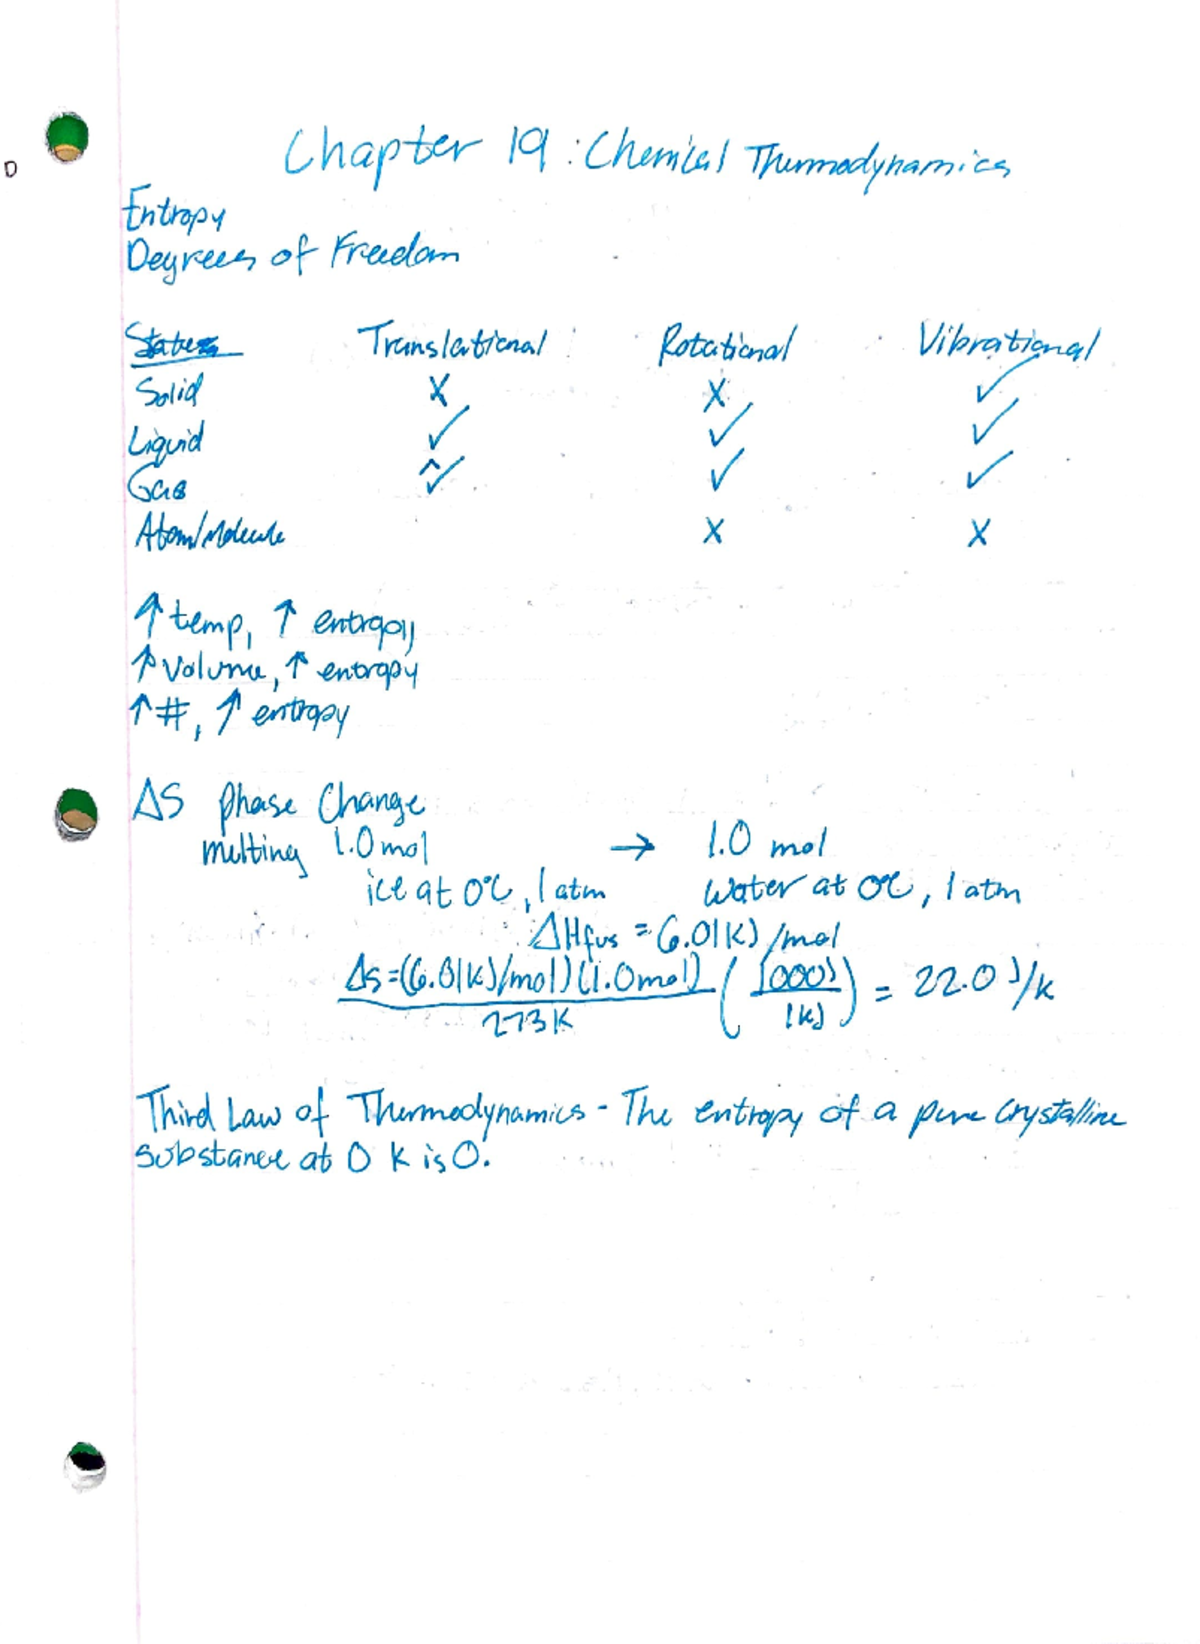 Chapter 19: Chemical Thermodynamics
D
Entropy
Degrees of Freedom
States Translational Rotational Vibrational
Solid X X ✓
Liquid ✓ ✓ ✓
Gas ^✓ ✓ ✓
Atom/Molecule X X
↑ temp, ↑ entropy
↑ Volume, ↑ entropy
↑ #, ↑ entropy
ΔS phase Change
melting 1.0 mol → 1.0 mol
ice at 0°C, 1 atm water at 0°C, 1 atm
ΔHfus = 6.01 kJ/mol
ΔS = (6.01 kJ/mol)(1.0 mol) / 273 K (1000 J / 1 kJ) = 22.0 J/K
Third Law of Thermodynamics - The entropy of a pure crystalline
substance at 0 K is 0.